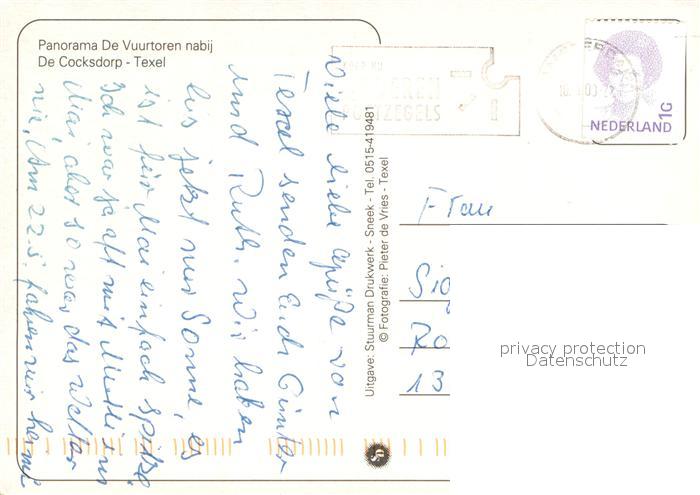 Panorama De Vuurtoren nabij
De Cocksdorp - Texel
Viele liebe Grüße von
Texel senden Euch Günter
und Ruth. Wir haben
bis jetzt nur Sonne, es
ist für Mai einfach spitze.
Ich war ja oft mit Mutti im
Mai, aber so war das Wetter
nie. Am 22.5. fahren wir heim
Uitgave: Stuurman Drukwerk - Sneek - Tel. 0515-419481
© Fotografie: Pieter de Vries - Texel
POSTZEGELS
NEDERLAND
1G
Frau
Sio
Ro
13
privacy protection
Datenschutz